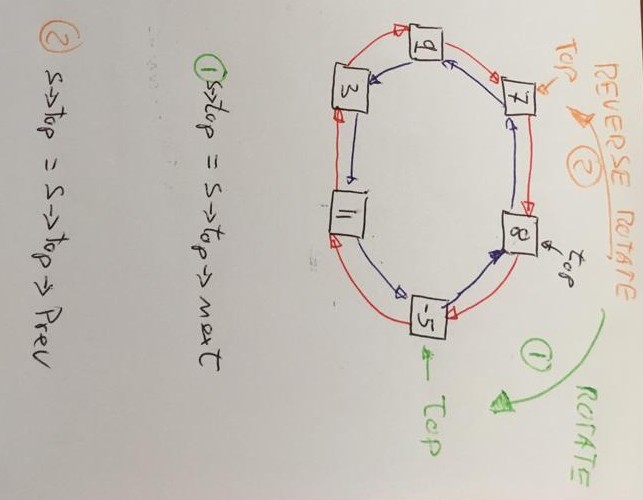 REVERSE ROTATE
2
TOP
top
ROTATE
1
7
8
9
-5
TOP
3
11
1 s→top = s→top→next
2 s→top = s→top→Prev